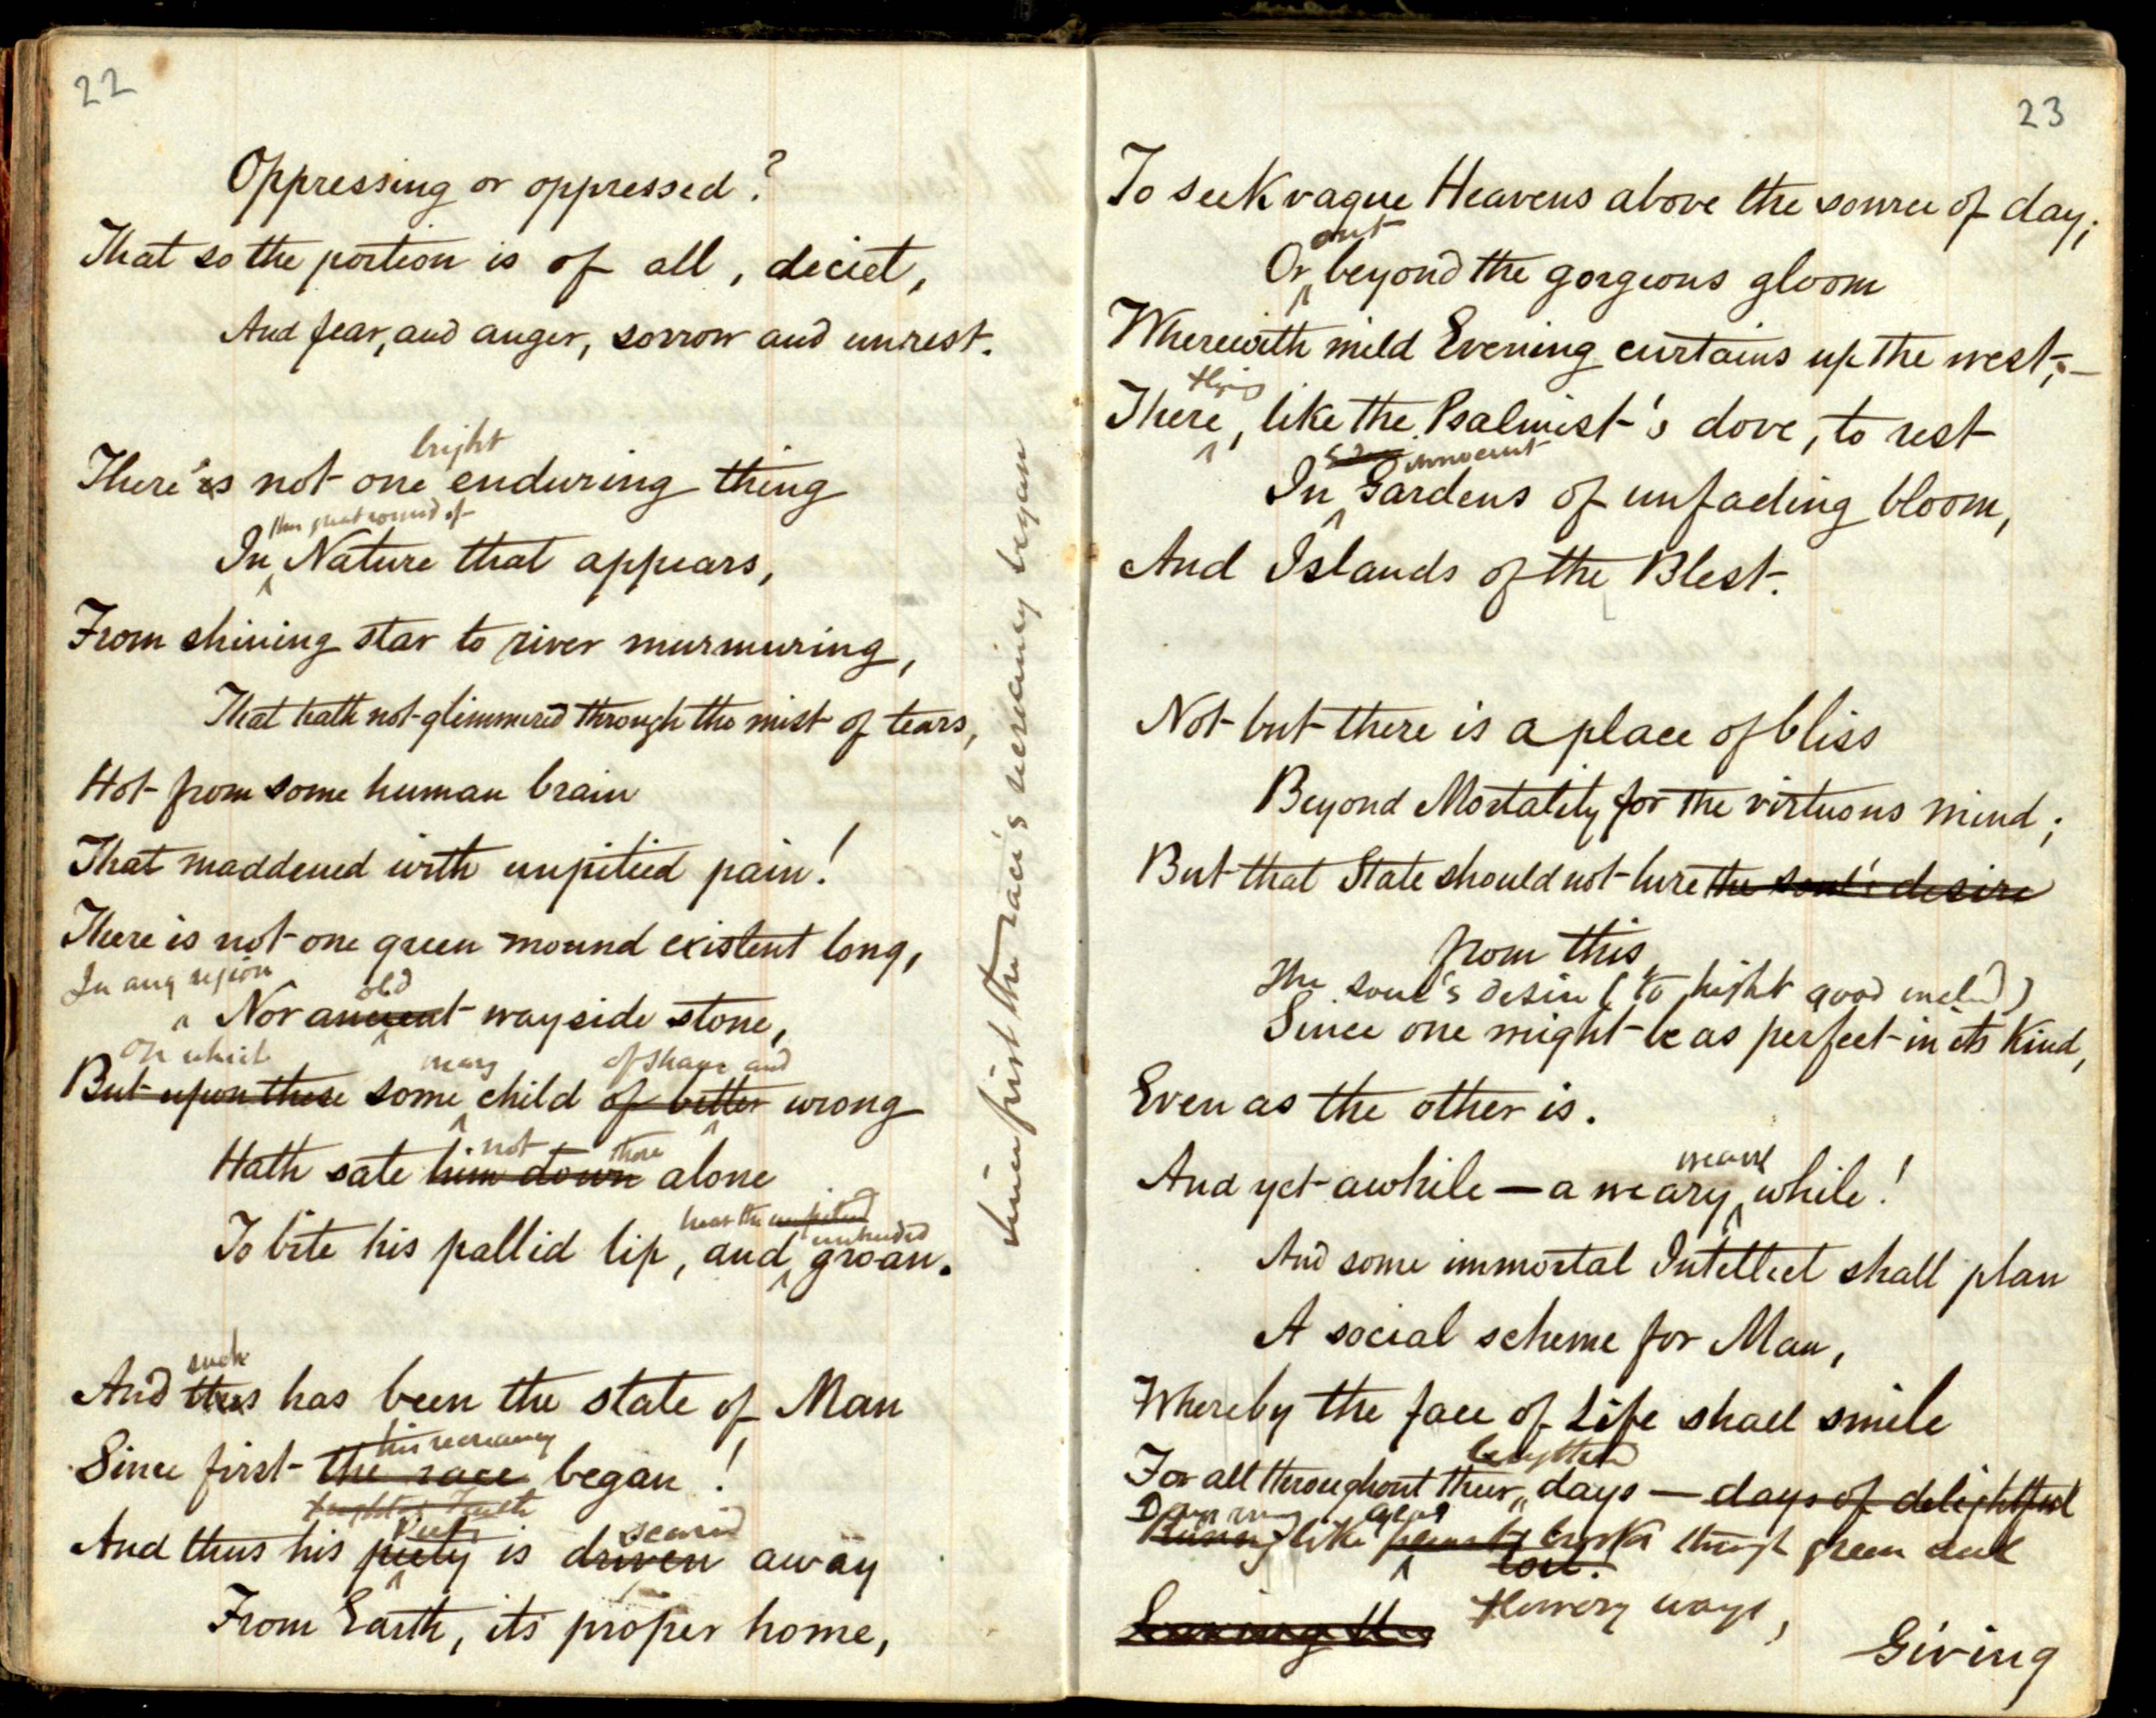 22
Oppressing or oppressed?
That so the portion is of all, deciet,
And fear, and anger, sorrow and unrest.
bright
There's not one enduring thing
this great round of
In Nature that appears,
From shining star to river murmuring,
That hath not glimmered through the mist of tears,
Hot from some human brain
That maddened with unpitied pain!
There is not one green mound existent long,
In any region old
Nor ancient wayside stone,
On which many of shame and
But upon these some child of bitter wrong
not there
Hath sate him down alone
hear the unpitied
unheeded
To bite his pallid lip, and groan.
such
And thus has been the state of Man
his recreancy
Since first the race began!
Truth
Piety scared
And thus his piety is driven away
From Earth, its proper home,
Since first the race's recreancy began
23
To seek vague Heavens above the source of day;
out
Or beyond the gorgeous gloom
Wherewith mild Evening curtains up the west;—
flying
There, like the Psalmist's dove, to rest
innocent
In Gardens of unfading bloom,
And Islands of the Blest.
Not but there is a place of bliss
Beyond Mortality for the virtuous mind;
But that State should not lure the soul's desire
from this
The soul's desire (to hight good inclined)
Since one might be as perfect in its kind,
Even as the other is.
weary
And yet awhile — a weary while!
And some immortal Intellect shall plan
A social scheme for Man,
Whereby the face of Life shall smile
lengthened
For all throughout their days — days of delightful
toil.
like through green and
flowery ways,
Giving